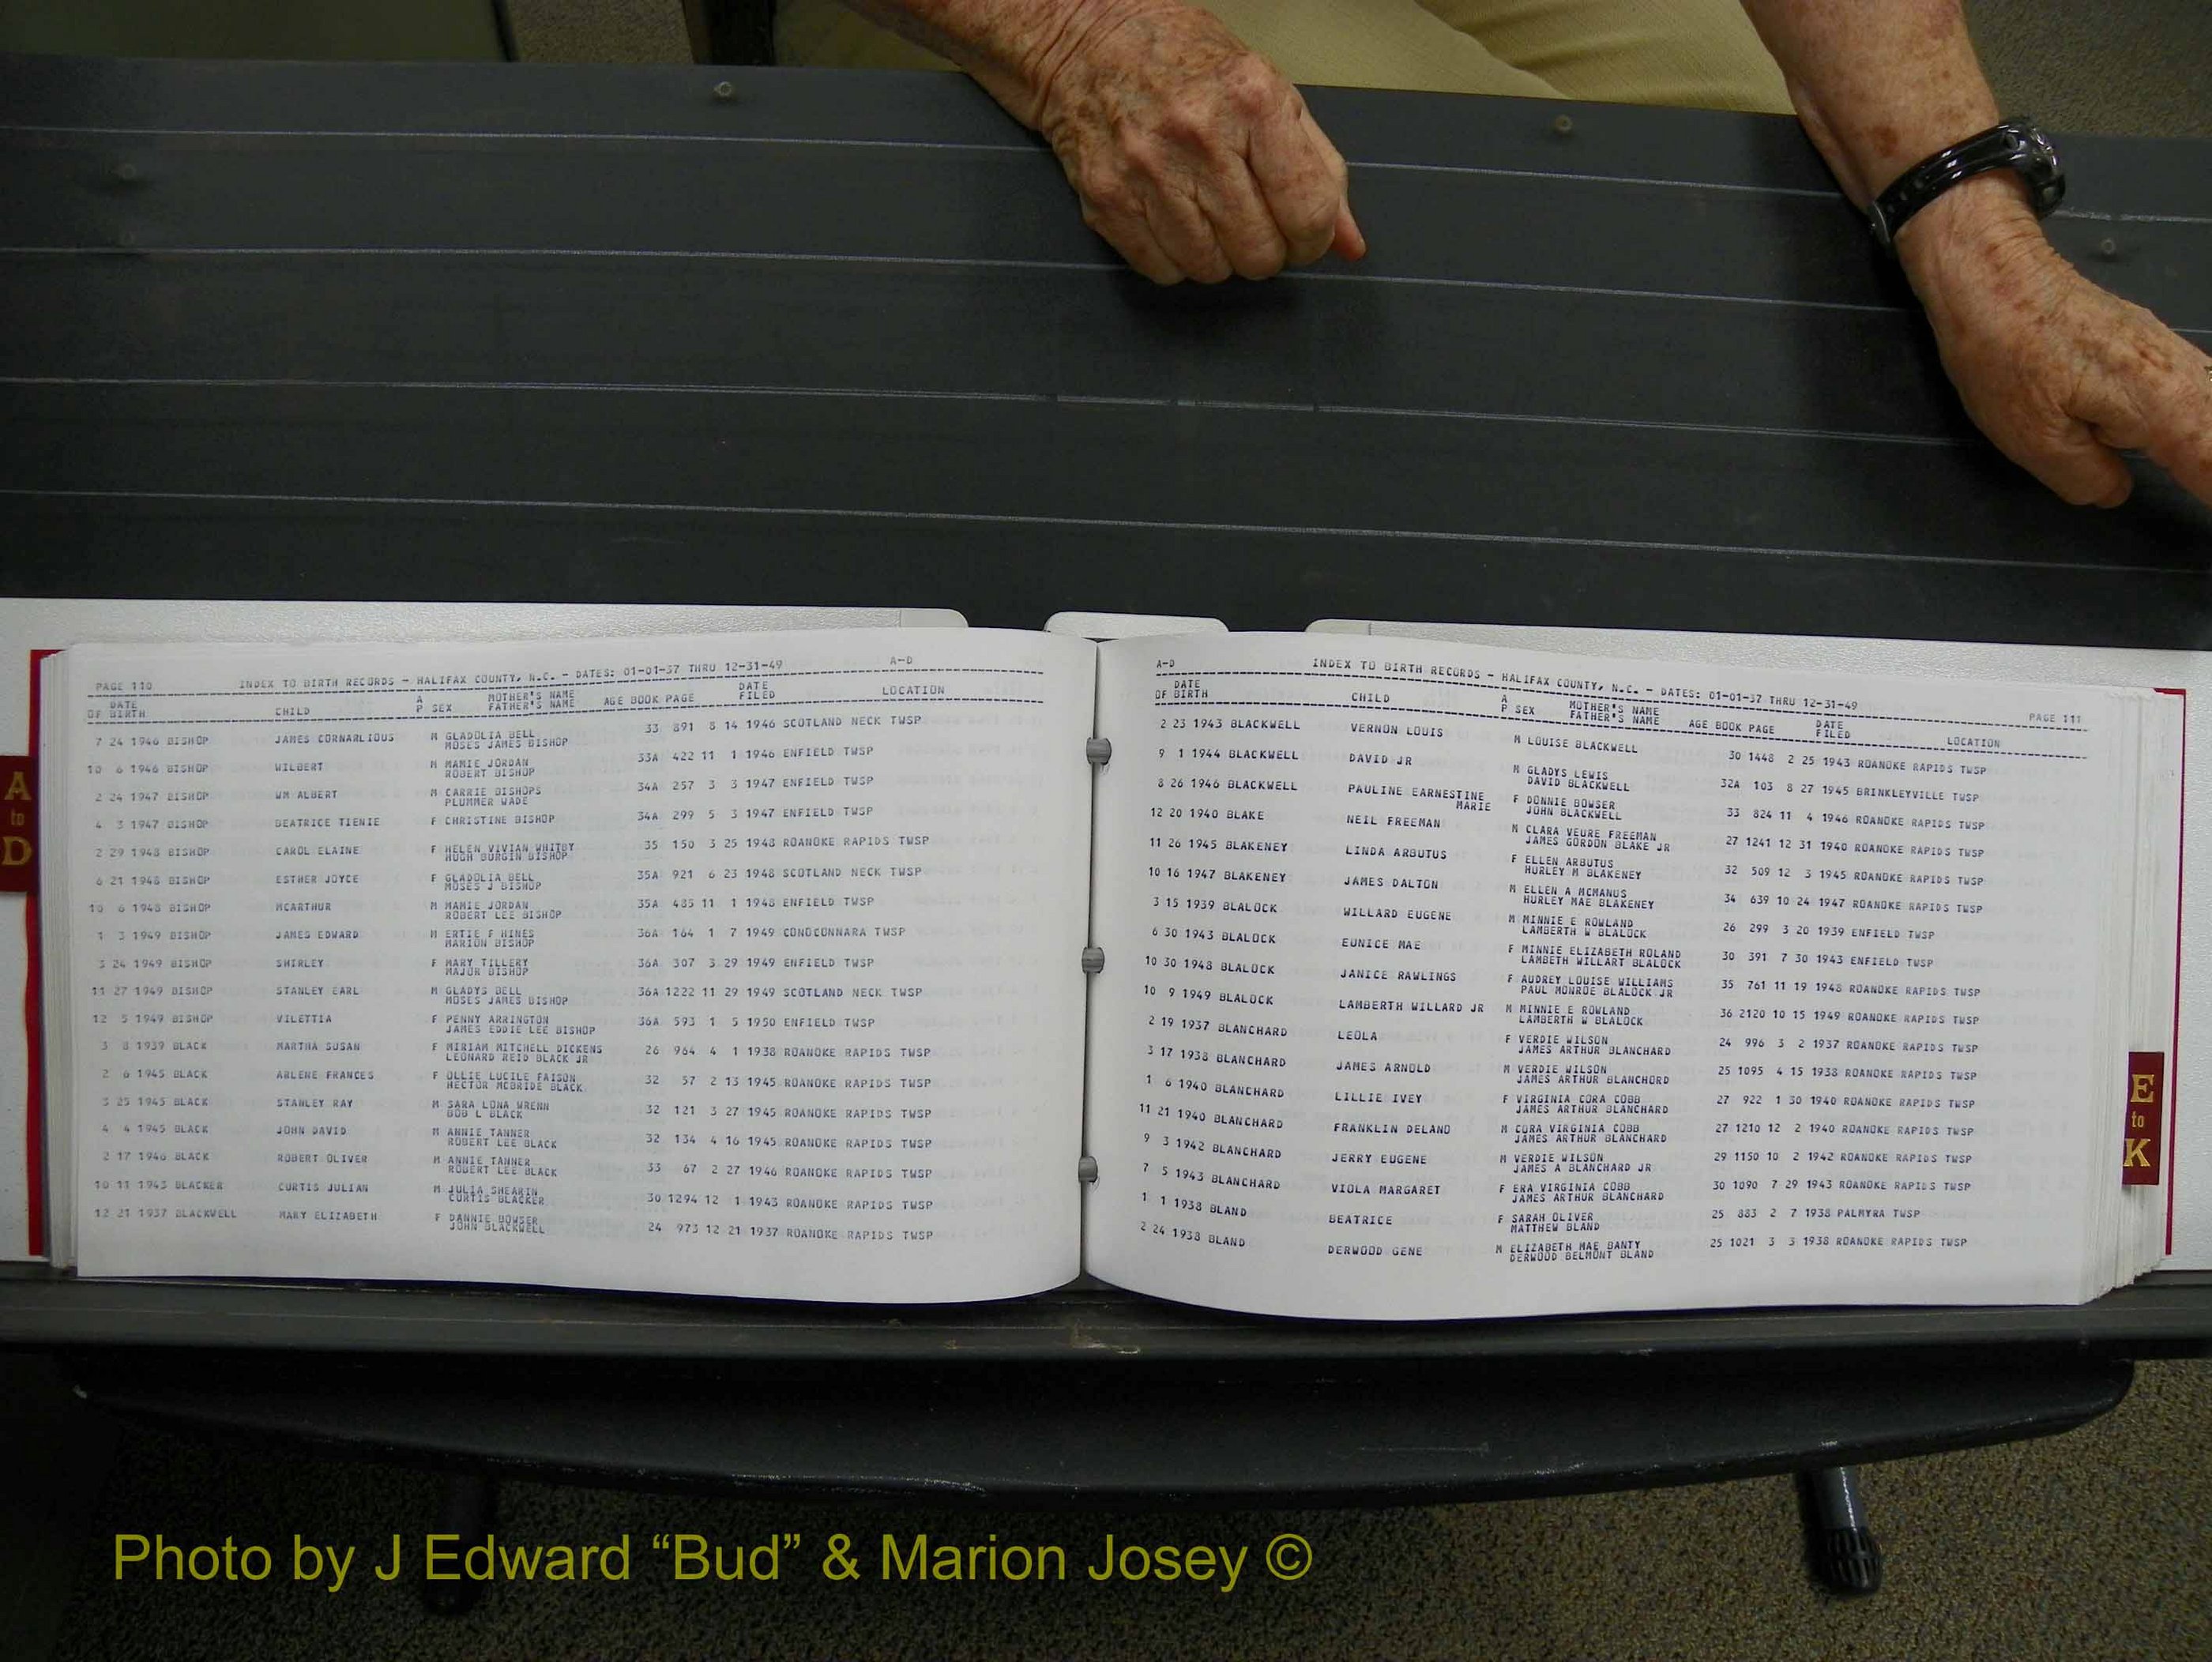 A
to
D
PAGE 110 INDEX TO BIRTH RECORDS - HALIFAX COUNTY, N.C. - DATES: 01-01-37 THRU 12-31-49 A-D
DATE OF BIRTH CHILD A P SEX MOTHER'S NAME FATHER'S NAME AGE BOOK PAGE DATE FILED LOCATION
7 24 1946 BISHOP JAMES CORNARLIOUS M GLADOLIA BELL 33 891 8 14 1946 SCOTLAND NECK TWSP
MOSES JAMES BISHOP
10 6 1946 BISHOP WILBERT M MAMIE JORDAN 33A 422 11 1 1946 ENFIELD TWSP
ROBERT BISHOP
2 24 1947 BISHOP WM ALBERT M CARRIE BISHOPS 34A 257 3 3 1947 ENFIELD TWSP
PLUMMER WADE
4 3 1947 BISHOP BEATRICE TIENIE F CHRISTINE BISHOP 34A 299 5 3 1947 ENFIELD TWSP
2 29 1948 BISHOP CAROL ELAINE F HELEN VIVIAN WHITBY 35 150 3 25 1948 ROANOKE RAPIDS TWSP
HUGH BURGIN BISHOP
6 21 1948 BISHOP ESTHER JOYCE F GLADOLIA BELL 35A 921 6 23 1948 SCOTLAND NECK TWSP
MOSES J BISHOP
10 6 1948 BISHOP MCARTHUR M MAMIE JORDAN 35A 485 11 1 1948 ENFIELD TWSP
ROBERT LEE BISHOP
1 3 1949 BISHOP JAMES EDWARD M ERTIE F HINES 36A 164 1 7 1949 CONOCONNARA TWSP
MARION BISHOP
3 24 1949 BISHOP SHIRLEY F MARY TILLERY 36A 307 3 29 1949 ENFIELD TWSP
MAJOR BISHOP
11 27 1949 BISHOP STANLEY EARL M GLADYS BELL 36A 1222 11 29 1949 SCOTLAND NECK TWSP
MOSES JAMES BISHOP
12 5 1949 BISHOP VILETTIA F PENNY ARRINGTON 36A 593 1 5 1950 ENFIELD TWSP
JAMES EDDIE LEE BISHOP
3 8 1939 BLACK MARTHA SUSAN F MIRIAM MITCHELL DICKENS 26 964 4 1 1938 ROANOKE RAPIDS TWSP
LEONARD REID BLACK JR
2 6 1945 BLACK ARLENE FRANCES F OLLIE LUCILE FAISON 32 57 2 13 1945 ROANOKE RAPIDS TWSP
HECTOR MCBRIDE BLACK
3 25 1945 BLACK STANLEY RAY M SARA LONA WRENN 32 121 3 27 1945 ROANOKE RAPIDS TWSP
BOB L BLACK
4 4 1945 BLACK JOHN DAVID M ANNIE TANNER 32 134 4 16 1945 ROANOKE RAPIDS TWSP
ROBERT LEE BLACK
2 17 1946 BLACK ROBERT OLIVER M ANNIE TANNER 33 67 2 27 1946 ROANOKE RAPIDS TWSP
ROBERT LEE BLACK
10 11 1943 BLACKER CURTIS JULIAN M JULIA SHEARIN 30 1294 12 1 1943 ROANOKE RAPIDS TWSP
CURTIS BLACKER
12 21 1937 BLACKWELL MARY ELIZABETH F DANNIE BOWSER 24 973 12 21 1937 ROANOKE RAPIDS TWSP
JOHN BLACKWELL
A-D INDEX TO BIRTH RECORDS - HALIFAX COUNTY, N.C. - DATES: 01-01-37 THRU 12-31-49 PAGE 111
DATE OF BIRTH CHILD A P SEX MOTHER'S NAME FATHER'S NAME AGE BOOK PAGE DATE FILED LOCATION
2 23 1943 BLACKWELL VERNON LOUIS M LOUISE BLACKWELL 30 1448 2 25 1943 ROANOKE RAPIDS TWSP
9 1 1944 BLACKWELL DAVID JR M GLADYS LEWIS 32A 103 8 27 1945 BRINKLEYVILLE TWSP
DAVID BLACKWELL
8 26 1946 BLACKWELL PAULINE EARNESTINE F DONNIE BOWSER 33 824 11 4 1946 ROANOKE RAPIDS TWSP
MARIE JOHN BLACKWELL
12 20 1940 BLAKE NEIL FREEMAN M CLARA VEURE FREEMAN 27 1241 12 31 1940 ROANOKE RAPIDS TWSP
JAMES GORDON BLAKE JR
11 26 1945 BLAKENEY LINDA ARBUTUS F ELLEN ARBUTUS 32 509 12 3 1945 ROANOKE RAPIDS TWSP
HURLEY M BLAKENEY
10 16 1947 BLAKENEY JAMES DALTON M ELLEN A MCMANUS 34 639 10 24 1947 ROANOKE RAPIDS TWSP
HURLEY MAE BLAKENEY
3 15 1939 BLALOCK WILLARD EUGENE M MINNIE E ROWLAND 26 299 3 20 1939 ENFIELD TWSP
LAMBERTH W BLALOCK
6 30 1943 BLALOCK EUNICE MAE F MINNIE ELIZABETH ROLAND 30 391 7 30 1943 ENFIELD TWSP
LAMBETH WILLART BLALOCK
10 30 1948 BLALOCK JANICE RAWLINGS F AUDREY LOUISE WILLIAMS 35 761 11 19 1948 ROANOKE RAPIDS TWSP
PAUL MONROE BLALOCK JR
10 9 1949 BLALOCK LAMBERTH WILLARD JR M MINNIE E ROWLAND 36 2120 10 15 1949 ROANOKE RAPIDS TWSP
LAMBERTH W BLALOCK
2 19 1937 BLANCHARD LEOLA F VERDIE WILSON 24 996 3 2 1937 ROANOKE RAPIDS TWSP
JAMES ARTHUR BLANCHARD
3 17 1938 BLANCHARD JAMES ARNOLD M VERDIE WILSON 25 1095 4 15 1938 ROANOKE RAPIDS TWSP
JAMES ARTHUR BLANCHORD
1 6 1940 BLANCHARD LILLIE IVEY F VIRGINIA CORA COBB 27 922 1 30 1940 ROANOKE RAPIDS TWSP
JAMES ARTHUR BLANCHARD
11 21 1940 BLANCHARD FRANKLIN DELANO M CORA VIRGINIA COBB 27 1210 12 2 1940 ROANOKE RAPIDS TWSP
JAMES ARTHUR BLANCHARD
9 3 1942 BLANCHARD JERRY EUGENE M VERDIE WILSON 29 1150 10 2 1942 ROANOKE RAPIDS TWSP
JAMES A BLANCHARD JR
7 5 1943 BLANCHARD VIOLA MARGARET F ERA VIRGINIA COBB 30 1090 7 29 1943 ROANOKE RAPIDS TWSP
JAMES ARTHUR BLANCHARD
1 1 1938 BLAND BEATRICE F SARAH OLIVER 25 883 2 7 1938 PALMYRA TWSP
MATTHEW BLAND
2 24 1938 BLAND DERWOOD GENE M ELIZABETH MAE BANTY 25 1021 3 3 1938 ROANOKE RAPIDS TWSP
DERWOOD BELMONT BLAND
E
to
K
Photo by J Edward “Bud” & Marion Josey ©